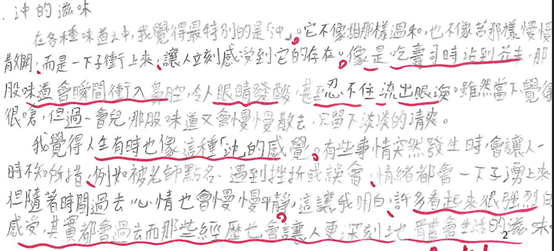 沖的滋味
在各種味道之中，我覺得最特別的是「沖」。它不像甜那樣溫和，也不像苦那樣慢慢
散開，而是一下子衝上來，讓人立刻感受到它的存在。像是吃壽司時沾到芥末，那
股味道會瞬間衝入鼻腔，令人眼睛發酸，甚至忍不住流出眼淚。雖然當下覺得
很嗆，但過一會兒，那股味道又會慢慢散去，只留下淡淡的清爽。
我覺得人生有時也像這種「沖」的感覺。有些事情突然發生時，會讓人一
時不知所措，例如被老師點名、遇到挫折或誤會，情緒都會一下子湧上來。
但隨著時間過去，心情也會慢慢平靜。這讓我明白，許多看起來很強烈的
感受，其實都會過去，而那些經歷也會讓人更深刻地 生活的滋味